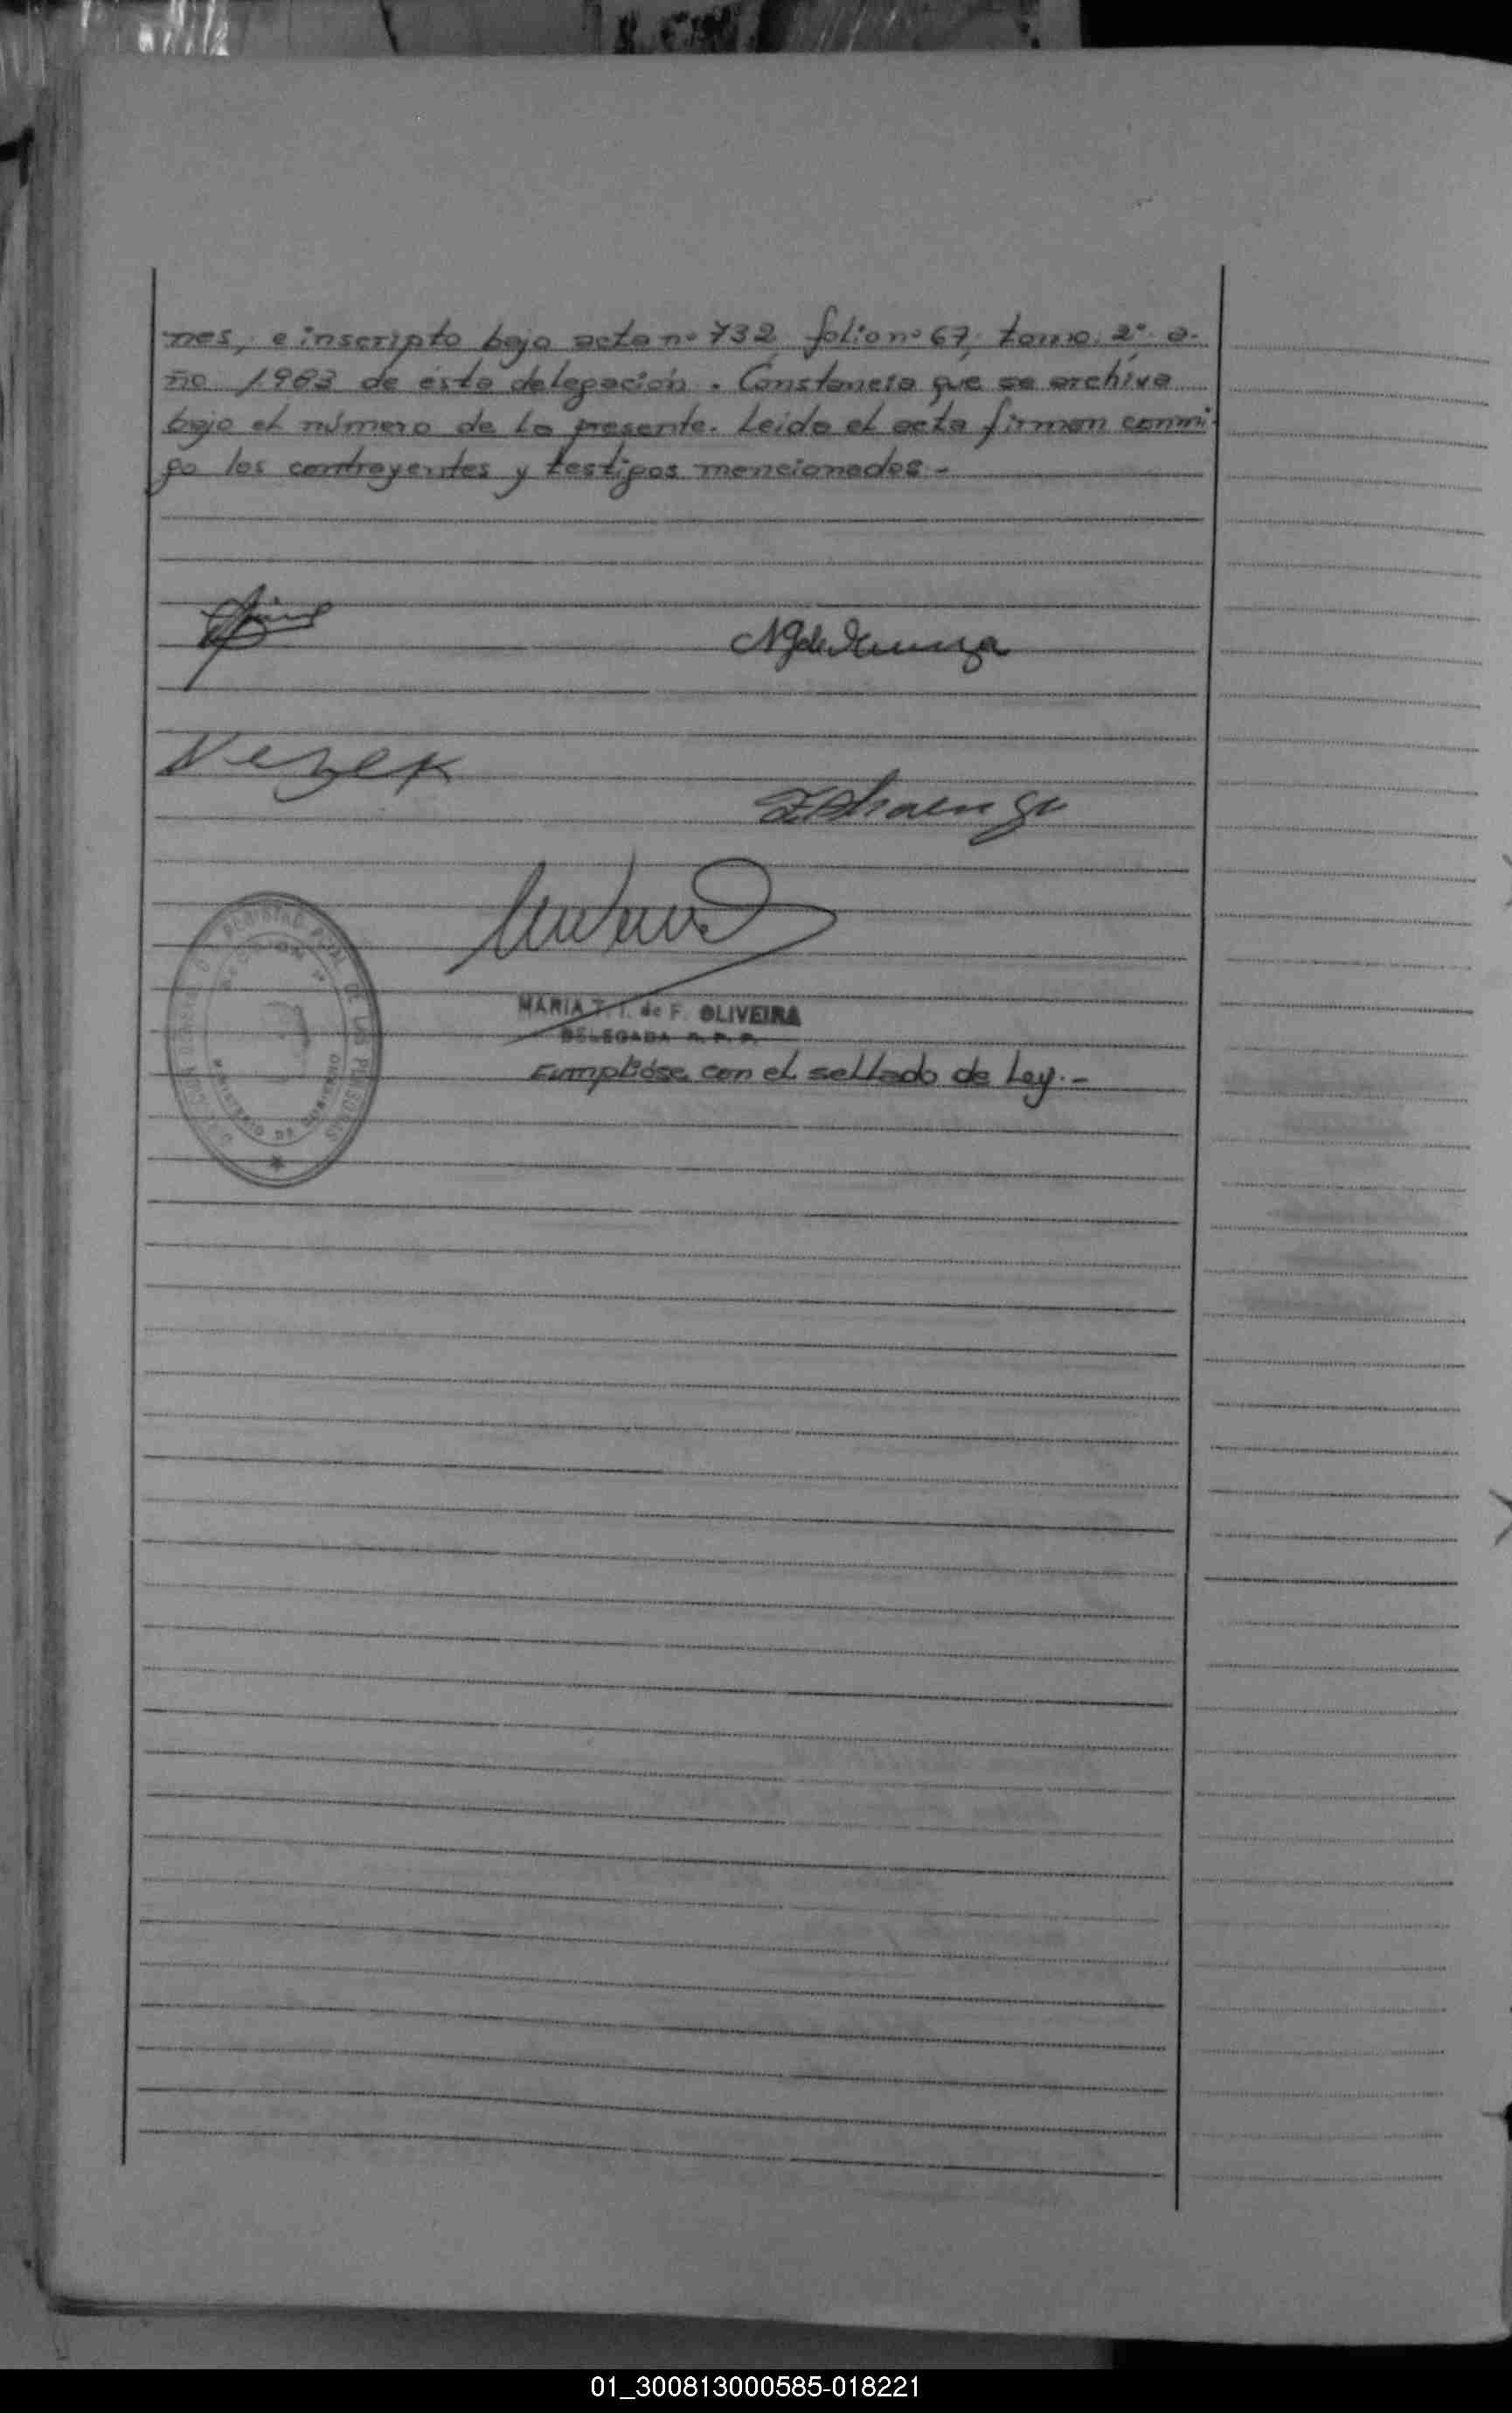 nes, e inscripto bajo acta nº 732, folio nº 67, tomo: 2º a-
ño 1963 de ésta delegación. Constancia que se archiva
bajo el número de la presente. Leida el acta firman conmi-
go los contrayentes y testigos mencionados.-
Nezek
REGISTRO DE LAS PERSONAS
MINISTERIO DE GOBIERNO
MARIA T. I. de F. OLIVEIRA
DELEGADA R. P. P.
Cumplióse con el sellado de Ley.-
01_300813000585-018221